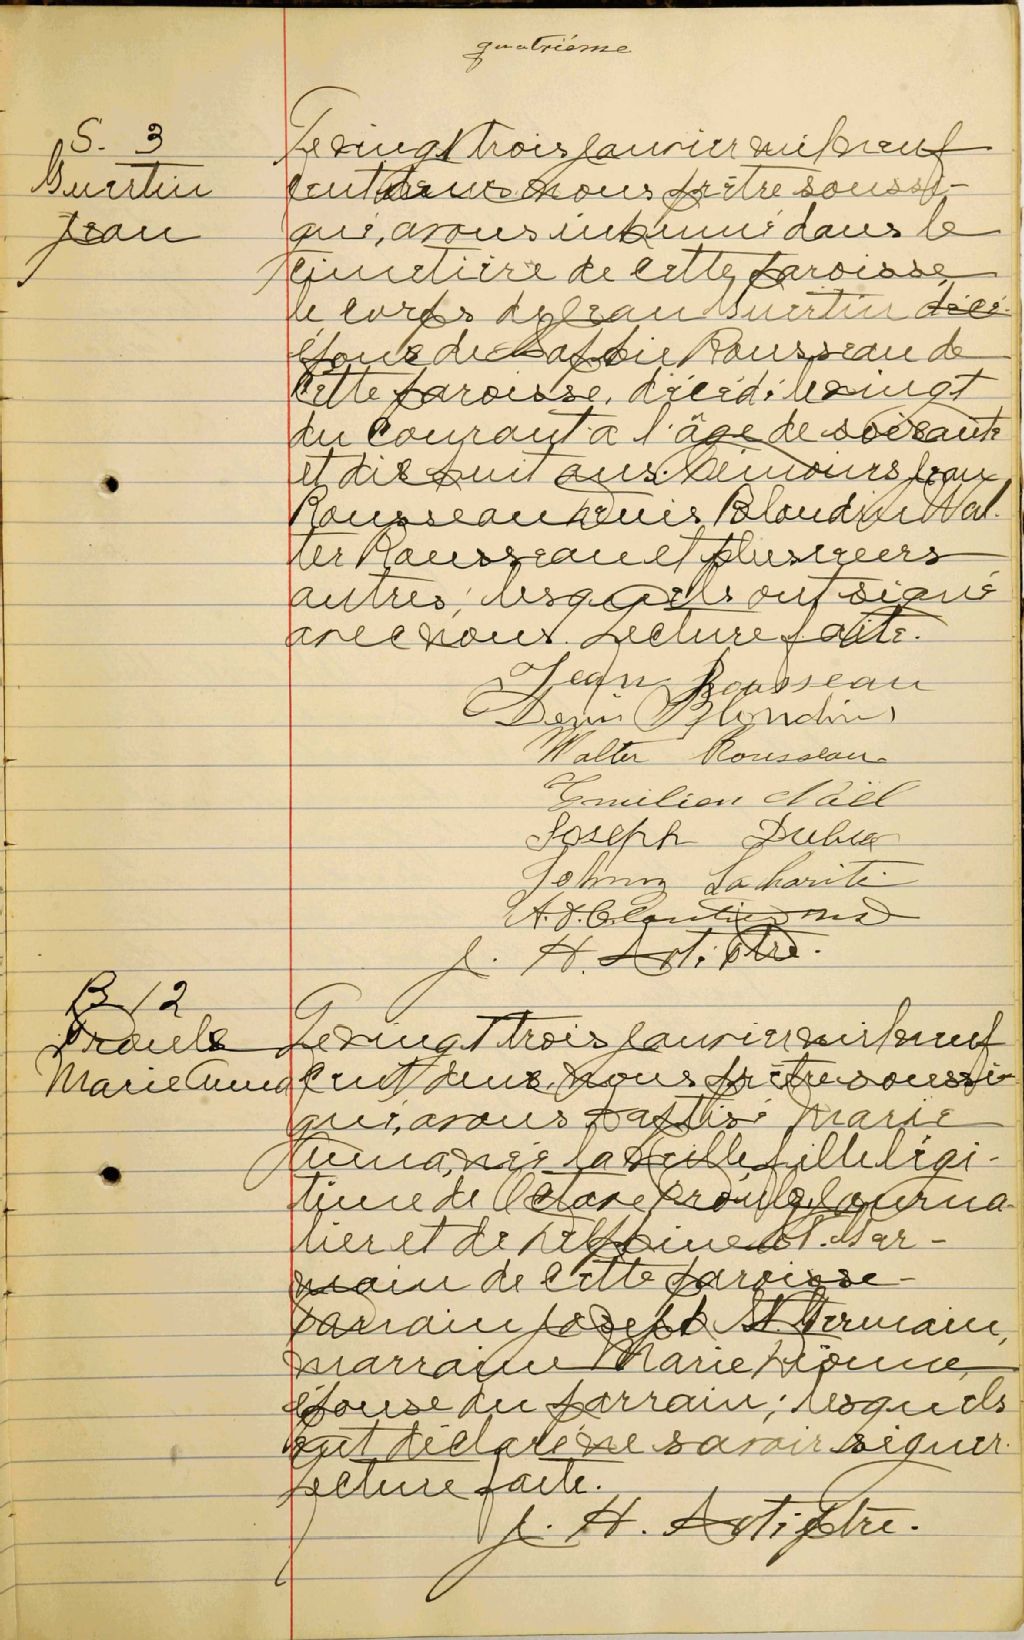 quatrième
S. 3
Guertin
Jean
Le vingt trois janvier mil neuf
cent deux nous prêtre soussi-
gné, avons inhumé dans le
cimetière de cette paroisse,
le corps de Jean Guertin
époux de Sophie Rousseau de
cette paroisse, décédé le vingt
du courant à l'âge de soixante
et dix huit ans. Témoins Jean
Rousseau Denis Blondin Wal-
ter Rousseau et plusieurs
autres; lesquels ont signé
avec nous. Lecture faite.
Jean Rousseau
Denis Blondin
Walter Rousseau
Emilien Noël
Joseph Dubuc
Johnny Laharité
J. H. ptre.
B 12
Proulx
Marie Anna
Le vingt trois janvier mil neuf
cent deux, nous prêtre soussi-
gné, avons baptisé Marie
Anna, née la veille, fille légi-
time de Octave Proulx journa-
lier et de Delphine St. Ger-
main de cette paroisse-
Parrain Joseph St. Germain,
marraine Marie Dionne,
épouse du parrain; lesquels
ont déclaré ne savoir signer.
Lecture faite.
J. H. ptre.